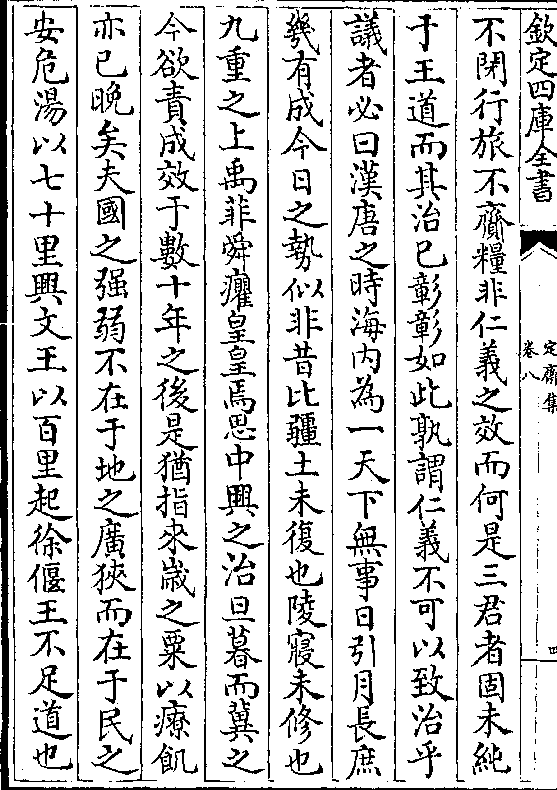 欽定四庫全書
定齋集
卷八
四
不閉行旅不齎糧非仁義之效而何是三君者固未純
于王道而其治已彰彰如此孰謂仁義不可以致治乎
議者必曰漢唐之時海內為一天下無事日引月長庶
幾有成今日之勢似非昔比疆土未復也陵寢未修也
九重之上禹菲舜癯皇皇焉思中興之治旦暮而冀之
今欲責成效于數十年之後是猶指來歲之粟以療飢
亦已晚矣夫國之强弱不在于地之廣狹而在于民之
安危湯以七十里興文王以百里起徐偃王不足道也